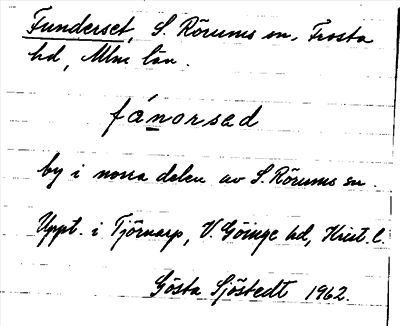 Funderset, S. Rörums sn, Frosta
hd, Mlm län.
fánorsad
by i norra delen av S. Rörums sn.
Uppt. i Tjörnarp, V. Göinge hd, Krist. l.
Gösta Sjöstedt 1962.